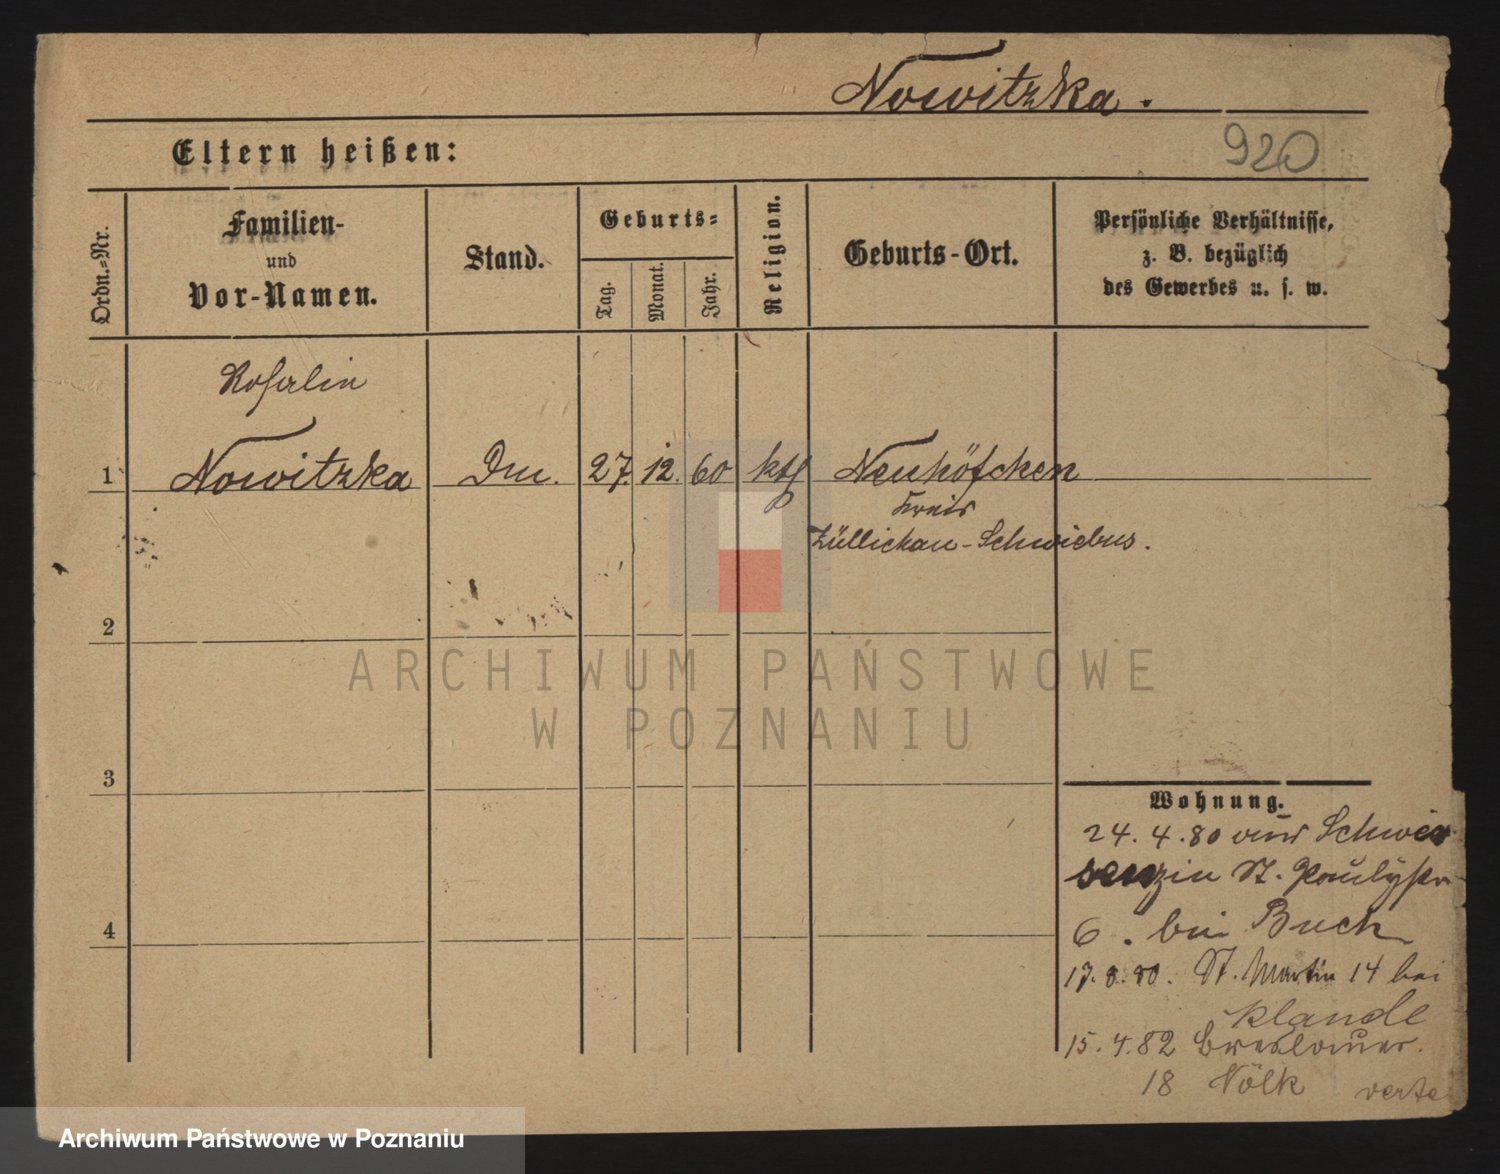 Nowitzka.
920
Eltern heißen:
Ordn.-Nr.
Familien-
und
Vor-Namen.
Stand.
Geburts-
Tag.
Monat.
Jahr.
Religion.
Geburts-Ort.
Persönliche Verhältnisse,
z. B. bezüglich
des Gewerbes u. s. w.
Rosalin
1 Nowitzka Dm. 27. 12. 60 kth Neuhöfchen
Kreis
Züllichau-Schwiebus.
2
ARCHIWUM PAŃSTWOWE
W POZNANIU
3
Wohnung.
24. 4. 80 aus Schwer
senzin St. Paulystr
4
6. bei Buch
17. 8. 80. St. Martin 14 bei
Klande
15. 4. 82 Breslauer.
18 Völk verte
Archiwum Państwowe w Poznaniu